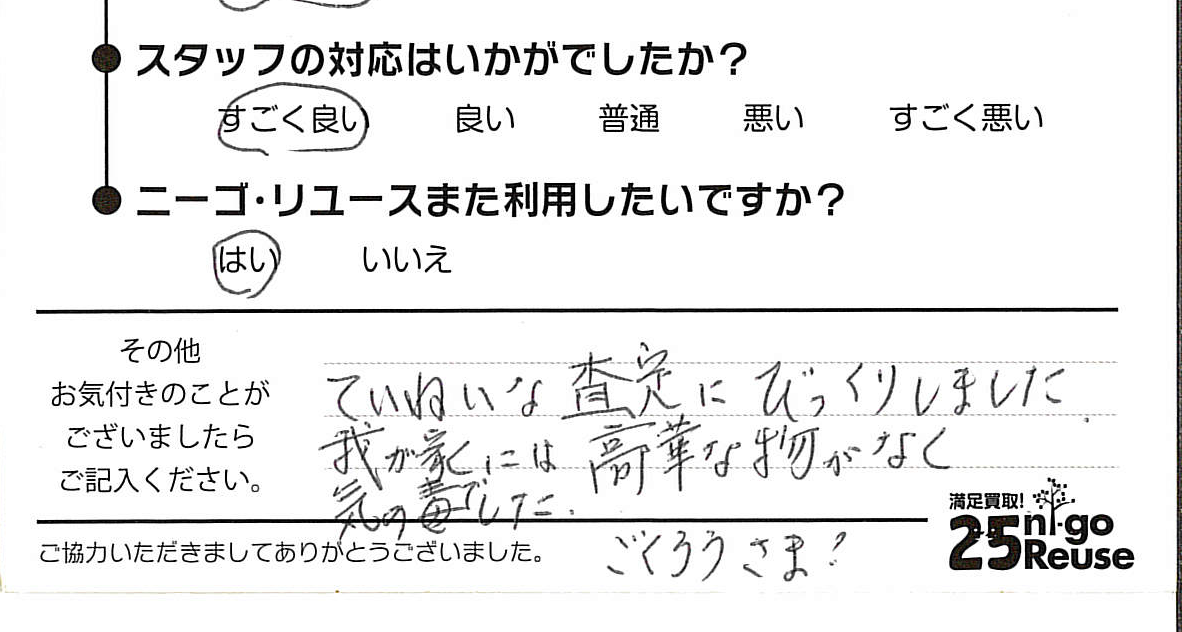 スタッフの対応はいかがでしたか?
すごく良い 良い 普通 悪い すごく悪い
ニーゴ・リユースまた利用したいですか?
はい いいえ
その他
お気付きのことが
ございましたら
ご記入ください。
ていねいな査定にびっくりしました
我が家には高華な物がなく
気の毒でした.
ごくろうさま!
ご協力いただきましてありがとうございました。
満足買取!
25 ni-go
Reuse